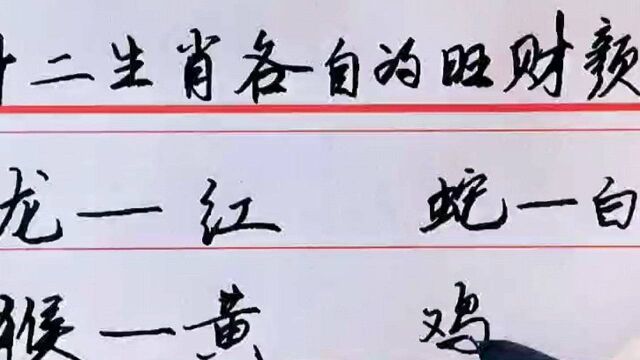 十二生肖各自为旺财颜
龙一红 蛇一白
猴一黄 鸡